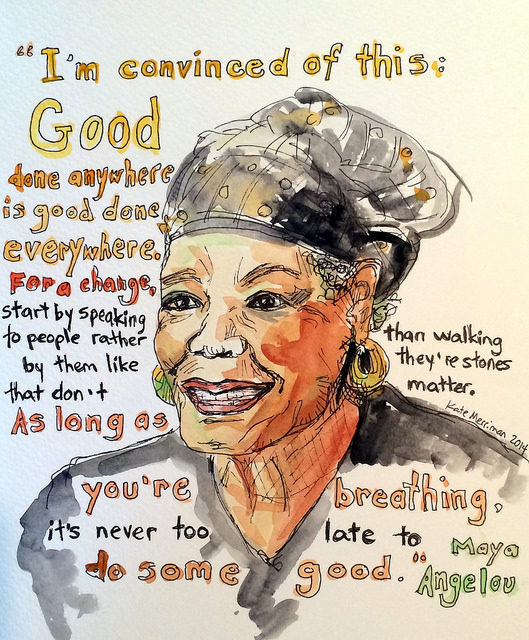 “I'm convinced of this:
Good
done anywhere
is good done
everywhere.
For a change,
start by speaking
to people rather
by them like
that don't
than walking
they're stones
matter.
As long as
you're breathing,
it's never too late to
do some good.”
Maya
Angelou
Kate Merriman 2014